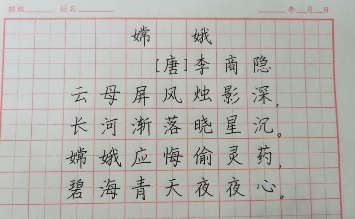 班级 姓名 年 月 日
嫦 娥
[唐]李商隐
云母屏风烛影深,
长河渐落晓星沉。
嫦娥应悔偷灵药,
碧海青天夜夜心。